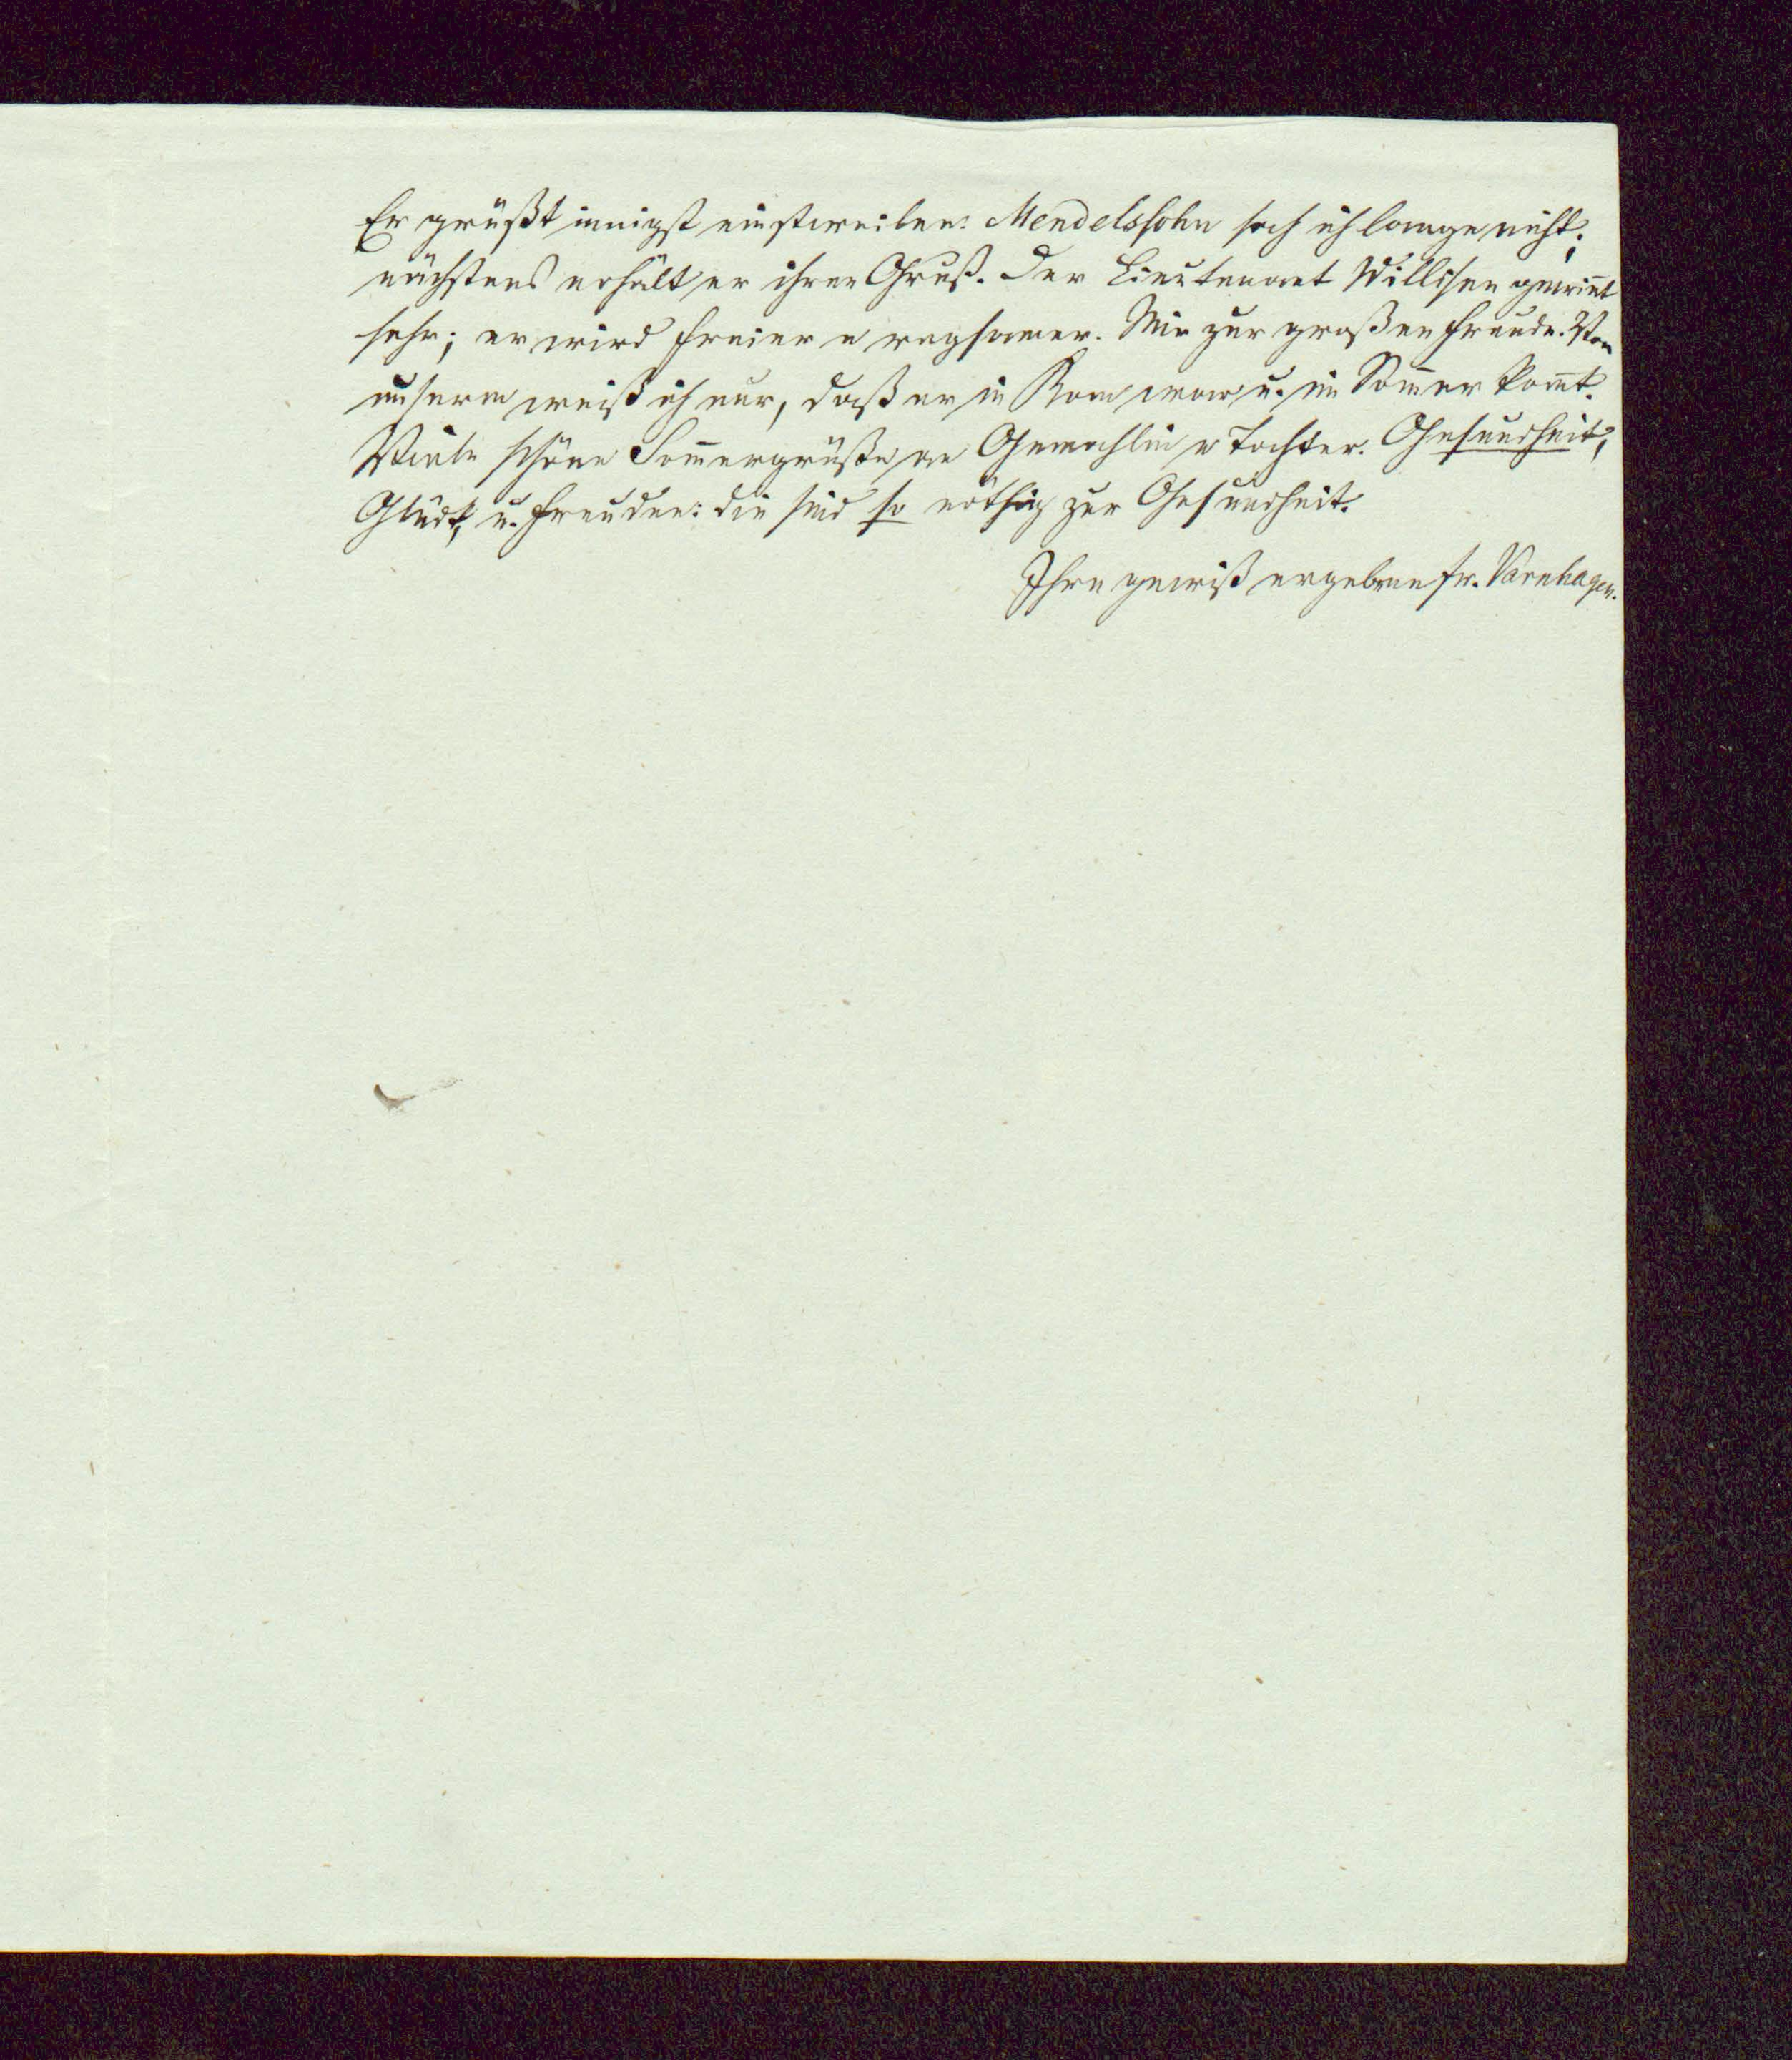 Er grüßt innigst einstweilen: Mendelssohn sah ich lange nicht;
nächstens erhält er ihren Gruß. Der Lieutenant Willisen gewin̄t
sehr; er wird freier u regsamer. Mir zur großen Freude. Von
unserm weiß ich nur, daß er in Rom war u. im Som̄er kom̄t.
Viele schöne Som̄ergrüße an Gemahlin u Tochter. Gesundheit,
Glück, u. Freuden: die sind so nöthig zur Gesundheit.
Ihre gewiß ergebene Fr. Varnhagen.